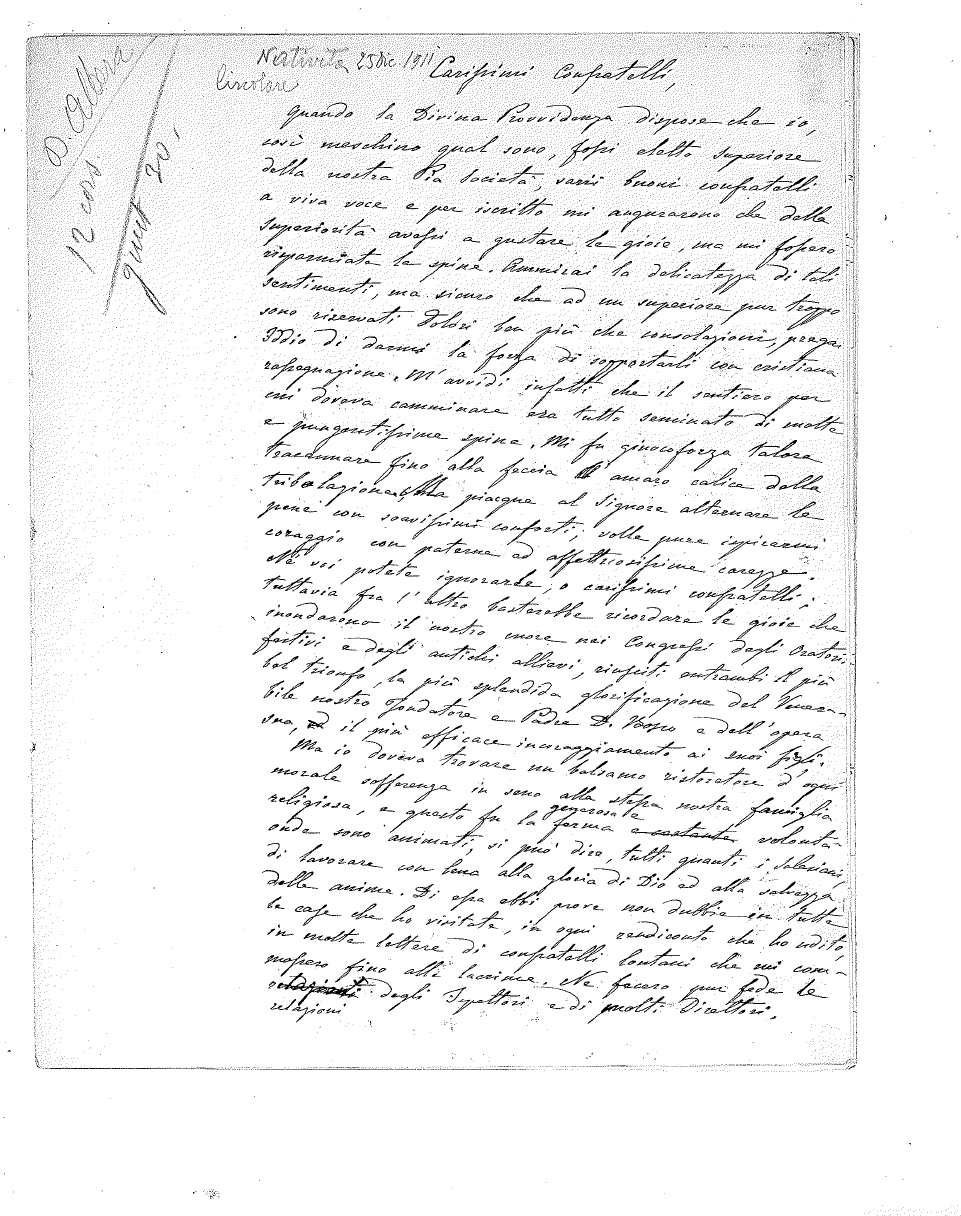 D. Albera
12 cors.
Natività 25 Dic. 1911
Circolare
Carissimi Confratelli,
Quando la Divina Provvidenza dispose che io,
così meschino qual sono, fossi eletto superiore
della nostra Pia Società, varii buoni confratelli
a viva voce e per iscritto mi augurarono che della
superiorità avessi a gustare le gioie, ma mi fossero
risparmiate le spine. Ammirai la delicatezza di tali
sentimenti, ma sicuro che ad un superiore pur troppo
sono riservati dolori ben più che consolazioni, pregai
Iddio di darmi la forza di sopportarli con cristiana
rassegnazione. M'avvidi infatti che il sentiero per
cui doveva camminare era tutto seminato di molte
e pungentissime spine. Mi fu giuocoforza talora
tracannare fino alla feccia l'amaro calice della
tribolazione. Ma piacque al Signore alternare le
pene con soavissimi conforti; volle pure ispirarmi
coraggio con paterne ed affettuosissime carezze.
Nè voi potete ignorarle, o carissimi confratelli;
tuttavia fra l'altro basterebbe ricordare le gioie che
inondarono il nostro cuore nei Congressi degli Oratori
festivi e degli antichi allievi, riusciti entrambi il più
bel trionfo, la più splendida glorificazione del Venera-
bile nostro Fondatore e Padre D. Bosco e dell'opera
sua, il più efficace incoraggiamento ai suoi figli.
Ma io doveva trovare un balsamo ristoratore d'ogni
morale sofferenza in seno alla stessa nostra famiglia
religiosa, e questo fu la ferma generosa e e costante volontà
onde sono animati, si può dire, tutti quanti i Salesiani,
di lavorare con lena alla gloria di Dio ed alla salvezza
delle anime. Di essa ebbi prove non dubbie in tutte
le case che ho visitate, in ogni rendiconto che ho udito,
in molte lettere di confratelli lontani che mi com-
mossero fino alle lacrime. Ne fecero pur fede le
relazioni degli Ispettori e di molti Direttori.